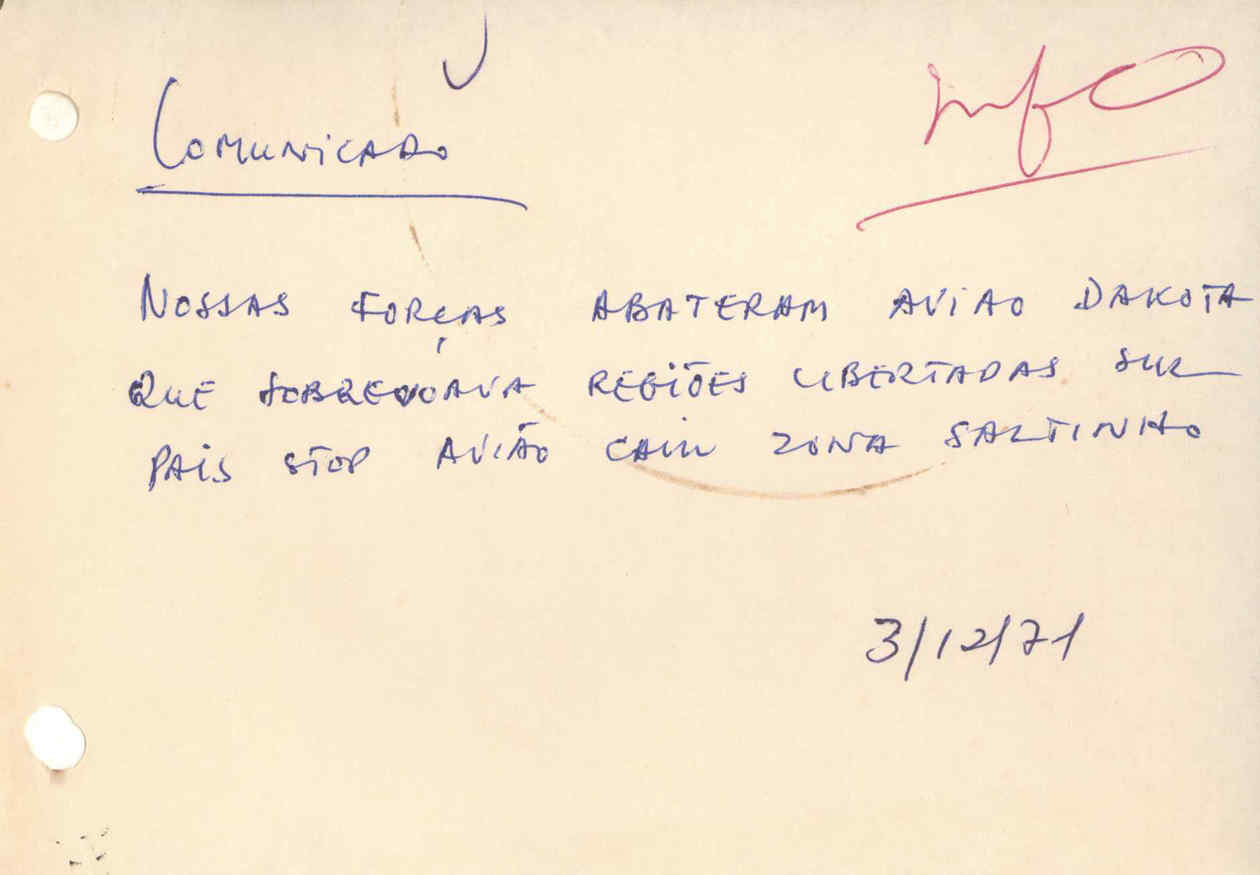 Info
COMUNICADO
NOSSAS FORÇAS ABATERAM AVIAO DAKOTA
QUE SOBREVOAVA REGIÕES LIBERTADAS SUL
PAIS STOP AVIÃO CAIU ZONA SALTINHO
3/12/71